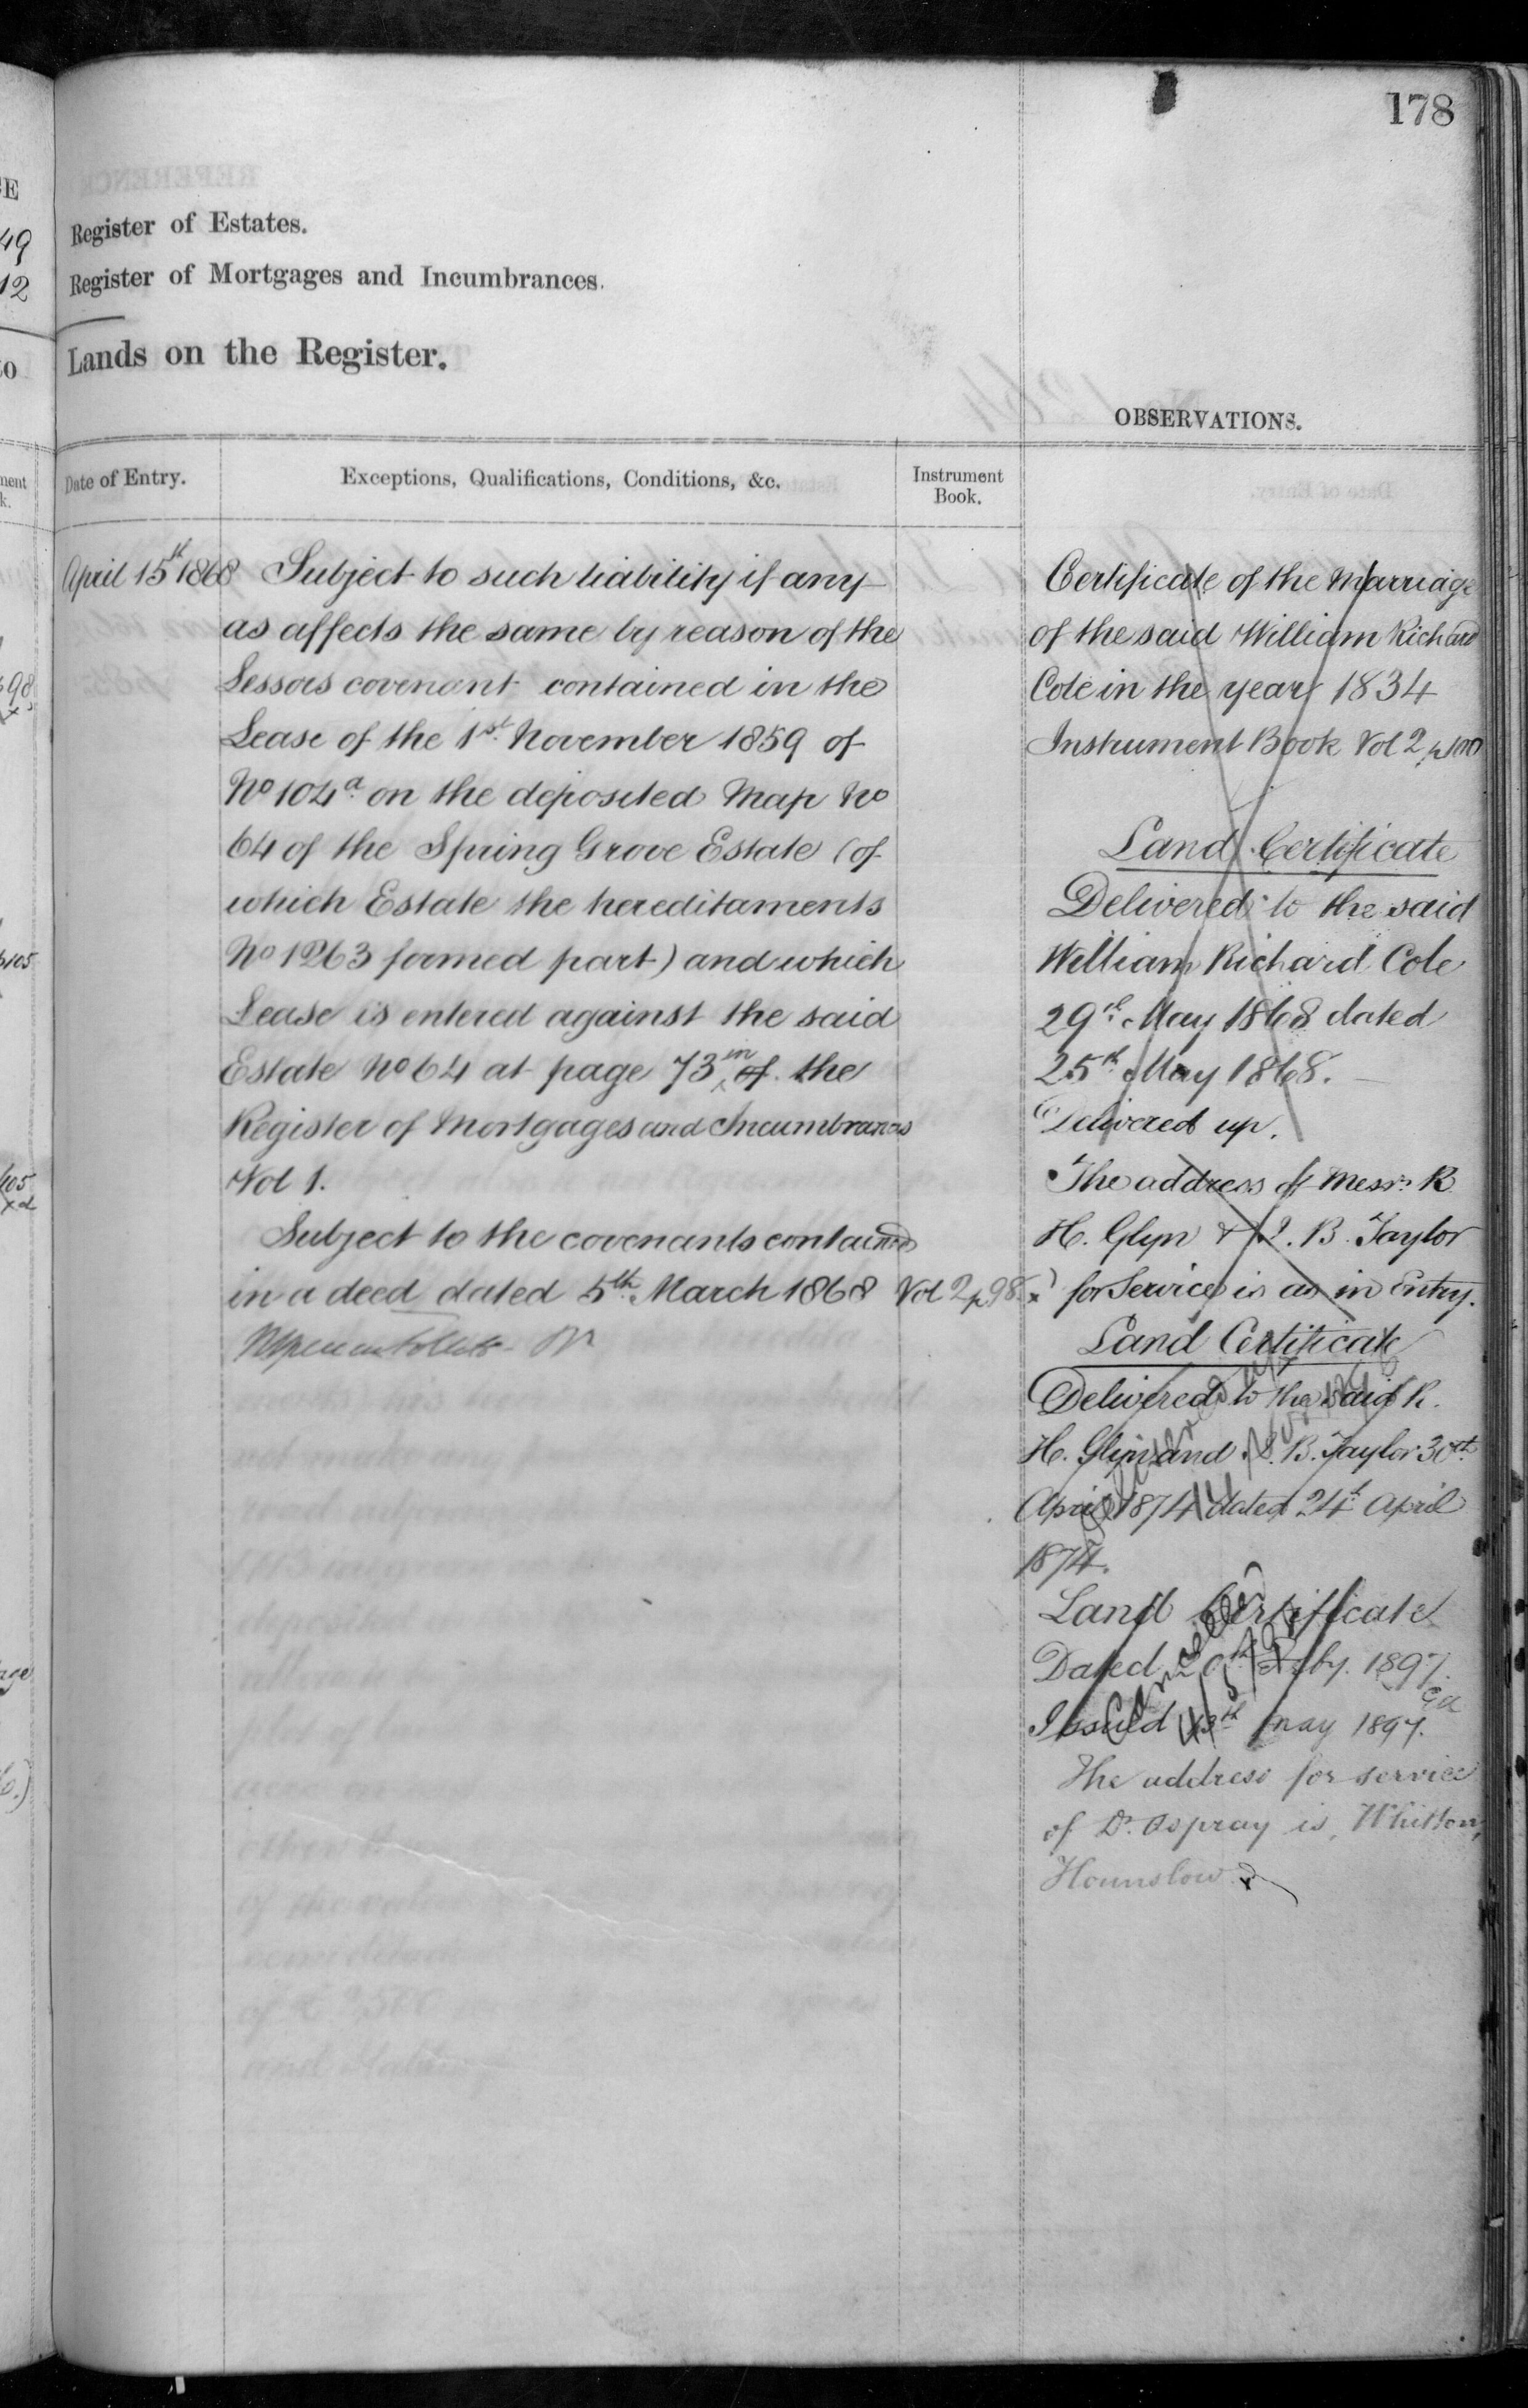 178
Register of Estates.
Register of Mortgages and Incumbrances.
Lands on the Register.
OBSERVATIONS.
Date of Entry.
Exceptions, Qualifications, Conditions, &c.
Instrument
Book.
April 15th 1868
Subject to such liability if any
as affects the same by reason of the
Lessors covenant contained in the
Lease of the 1st November 1859 of
No 104a on the deposited Map No
64 of the Spring Grove Estate (of
which Estate the hereditaments
No 1263 formed part) and which
Lease is entered against the said
Estate No 64 at page 73 in of the
Register of Mortgages and Incumbrances
Vol 1.
Subject to the covenants contained
in a deed dated 5th March 1868
Vol 2 p 98
Certificate of the Marriage
of the said William Richard
Cole in the year 1834
Instrument Book Vol 2 p 100
Land Certificate
Delivered to the said
William Richard Cole
29th May 1868 dated
25th May 1868.
Delivered up.
The address of Messrs R.
H. Glyn & B. Taylor
for Service is as in Entry.
Land Certificate
Delivered to the said R.
H. Glyn and B. Taylor 30th
April 1874 dated 24th April
1874.
Land Certificate
Dated Feby. 1897.
Issued 13th May 1897.
Cancelled
The address for service
of Dr. Ospray is, Whitton,
Hounslow